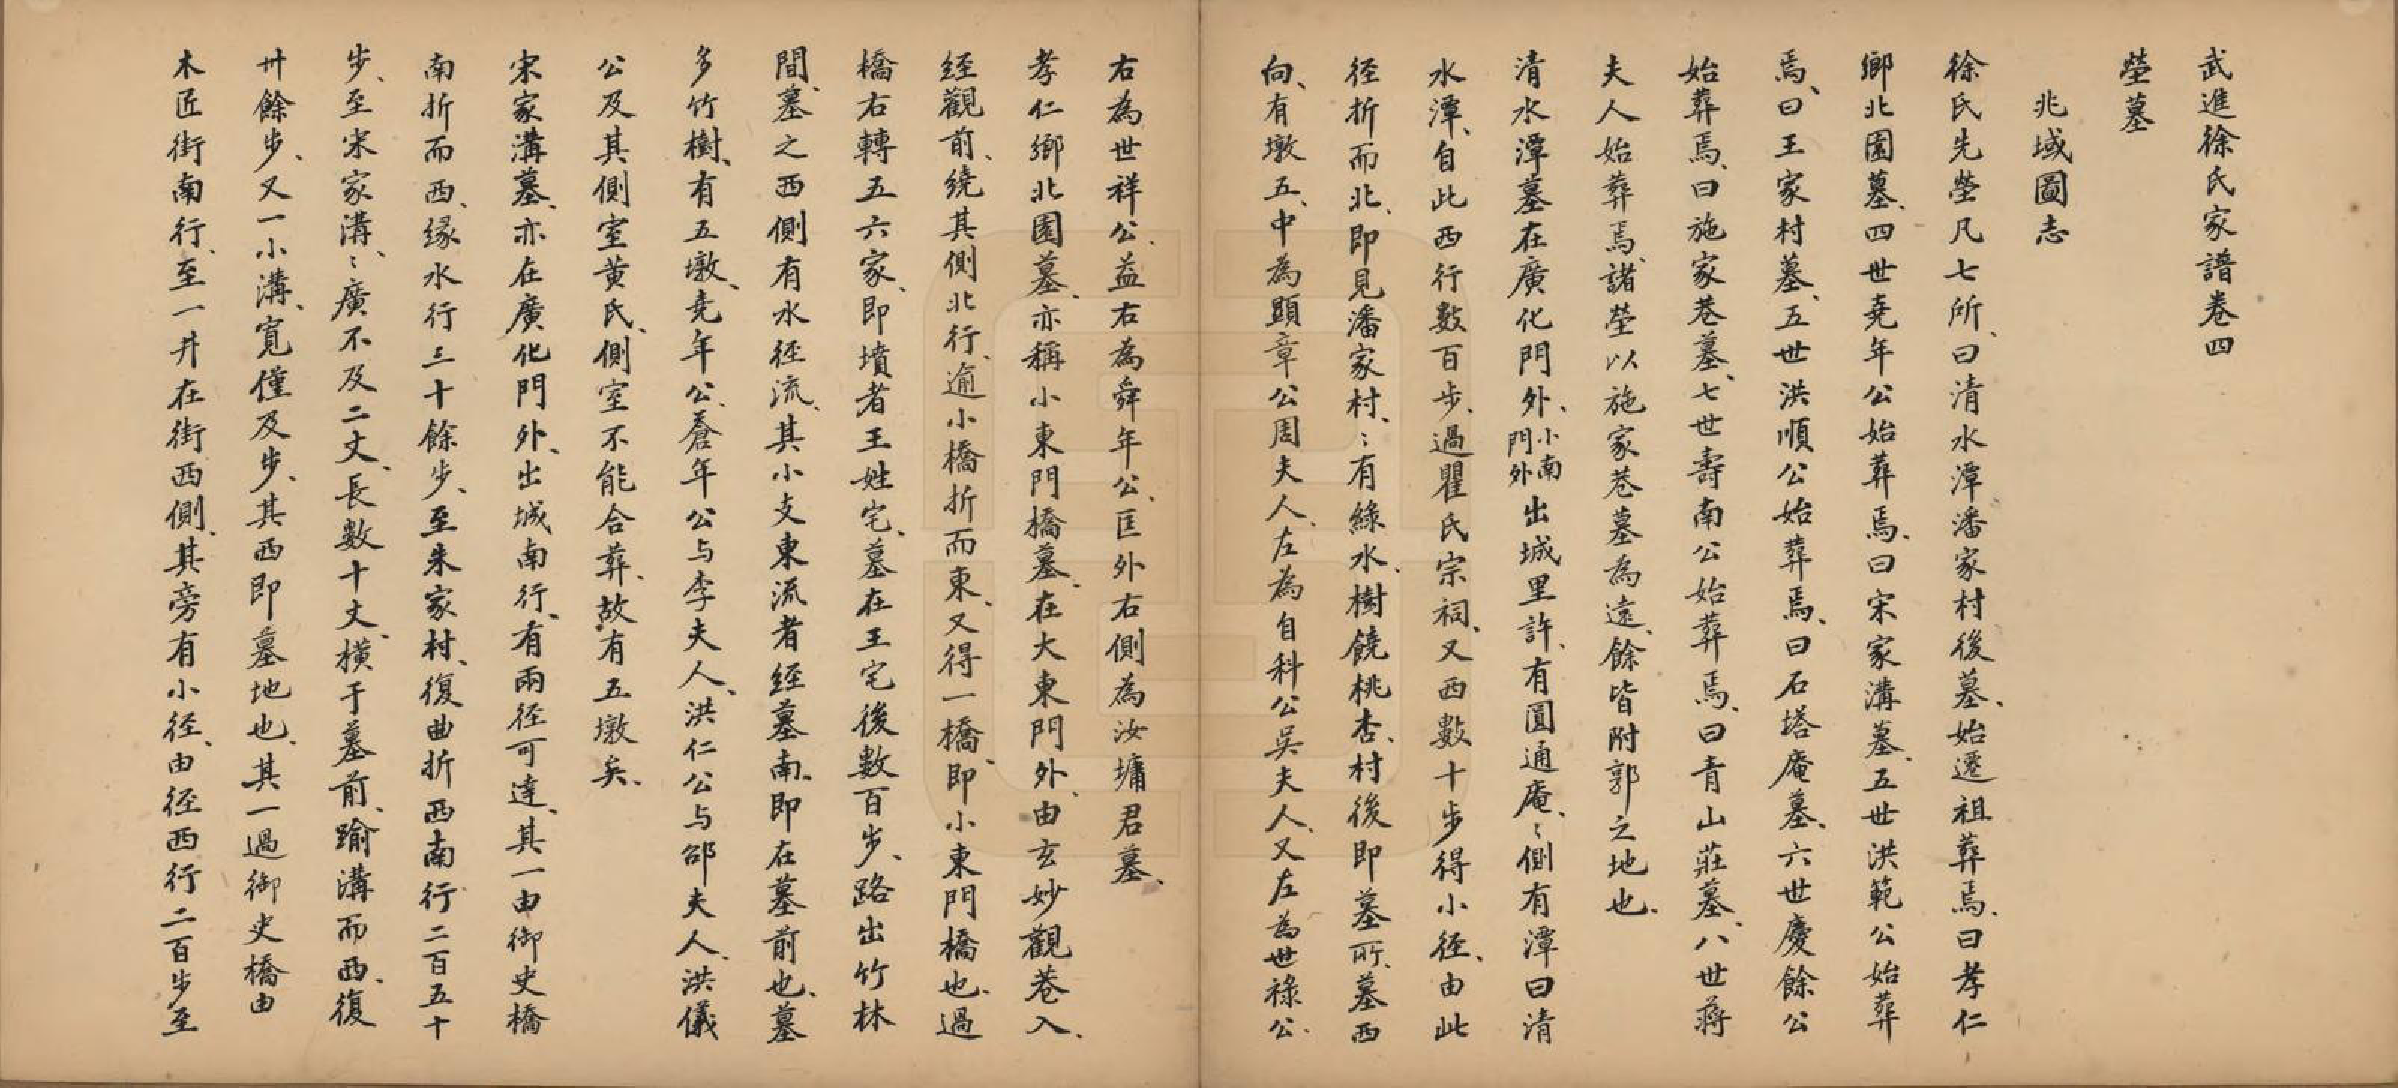 武進徐氏家譜卷四
塋墓
兆域圖志
徐氏先塋凡七所、曰清水潭潘家村後墓、始遷祖葬焉、曰孝仁
鄉北園墓、四世堯年公始葬焉、曰宋家溝墓、五世洪範公始葬
焉、曰王家村墓、五世洪順公始葬焉、曰石塔庵墓、六世慶餘公
始葬焉、曰施家巷墓、七世壽南公始葬焉、曰青山莊墓、八世蔣
夫人始葬焉、諸塋以施家巷墓為遠、餘皆附郭之地也、
清水潭墓在廣化門外、小南門外出城里許、有圓通庵、〻側有潭曰清
水潭、自此西行數百步、過瞿氏宗祠、又西數十步得小徑、由此
徑折而北、即見潘家村、〻有綠水、樹饒桃杏、村後即墓所、墓西
向、有墩五、中為顯章公周夫人、左為自科公吳夫人、又左為世祿公、
右為世祥公、益右為舜年公、匡外右側為汝墉君墓、
孝仁鄉北園墓、亦稱小東門橋墓、在大東門外、由玄妙觀巷入、
經觀前、繞其側北行、逾小橋折而東、又得一橋、即小東門橋也、過
橋右轉五六家、即墳者王姓宅、墓在王宅後數百步、路出竹林
間、墓之西側有水徑流、其小支東流者經墓南、即在墓前也、墓
多竹樹、有五墩、堯年公、蒼年公与李夫人、洪仁公与邵夫人、洪儀
公及其側室黄氏、側室不能合葬、故有五墩矣、
宋家溝墓、亦在廣化門外、出城南行、有兩徑可達、其一由御史橋
南折而西、缘水行三十餘步、至朱家村、復曲折西南行二百五十
步、至宋家溝、〻廣不及二丈、長數十丈、橫于墓前、踰溝而西、復
卅餘步、又一小溝、寬僅及步、其西即墓地也、其一過御史橋由
木匠街南行、至一井在街西側、其旁有小徑、由徑西行二百步至